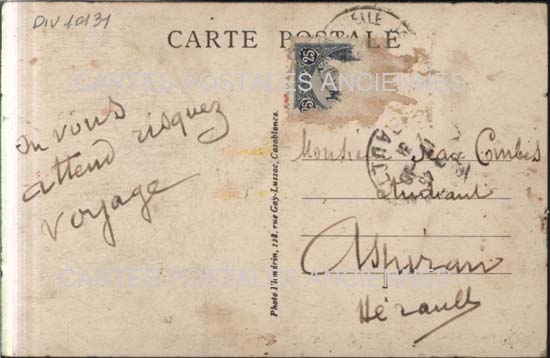 DIV 10131
CARTE POSTALE
25
25
CARTES POSTALES ANCIENNES
on vous
attend risquez
voyage
Photo l'Amérin, 128, rue Gay-Lussac, Casablanca.
Monsieur Jean Combes
Etudiant
Aspiran
Hérault
CARTES POSTALES ANCIENNES